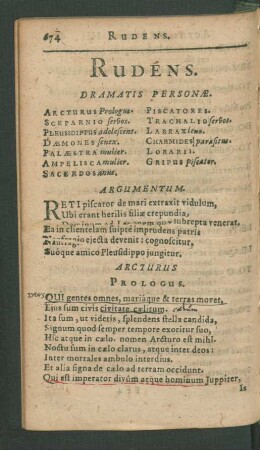 674 RUDENS.
RUDÉNS.
DRAMATIS PERSONÆ.
ARCTURUS Prologus. PISCATORES.
SCEPARNIO servos. TRACHALIO servos.
PLEUSIDIPPUS adolescent. LABRAX leno.
DÆMONES senex. CHARMIDES parasitus.
PALÆSTRA mulier. LORARII.
AMPELISCA mulier. GRIPUS piscator.
SACERDOS anus.
ARGUMENTUM.
RETI piscator de mari extraxit vidulum,
Ubi erant herilis filiæ crepundia,
subrepta venerat.
Ea in clientelam suipte imprudens patris
Naufragio ejecta devenit: cognoscitur,
Suoque amico Pleusidippo jungitur.
ARCTURUS
PROLOGUS.
QUI gentes omnes, mariáque & terras movet,
Ejus sum civis civitate cælitum.
Ita sum, ut videtis, splendens stella candida,
Signum quod semper tempore exoritur suo,
Hic atque in cælo. nomen Arcturo est mihi.
Noctu sum in cælo clarus, atque inter deos:
Inter mortales ambulo interdius.
Et alia signa de cælo ad terram occidunt.
Qui est imperator divûm atque hominum Juppiter,
Is